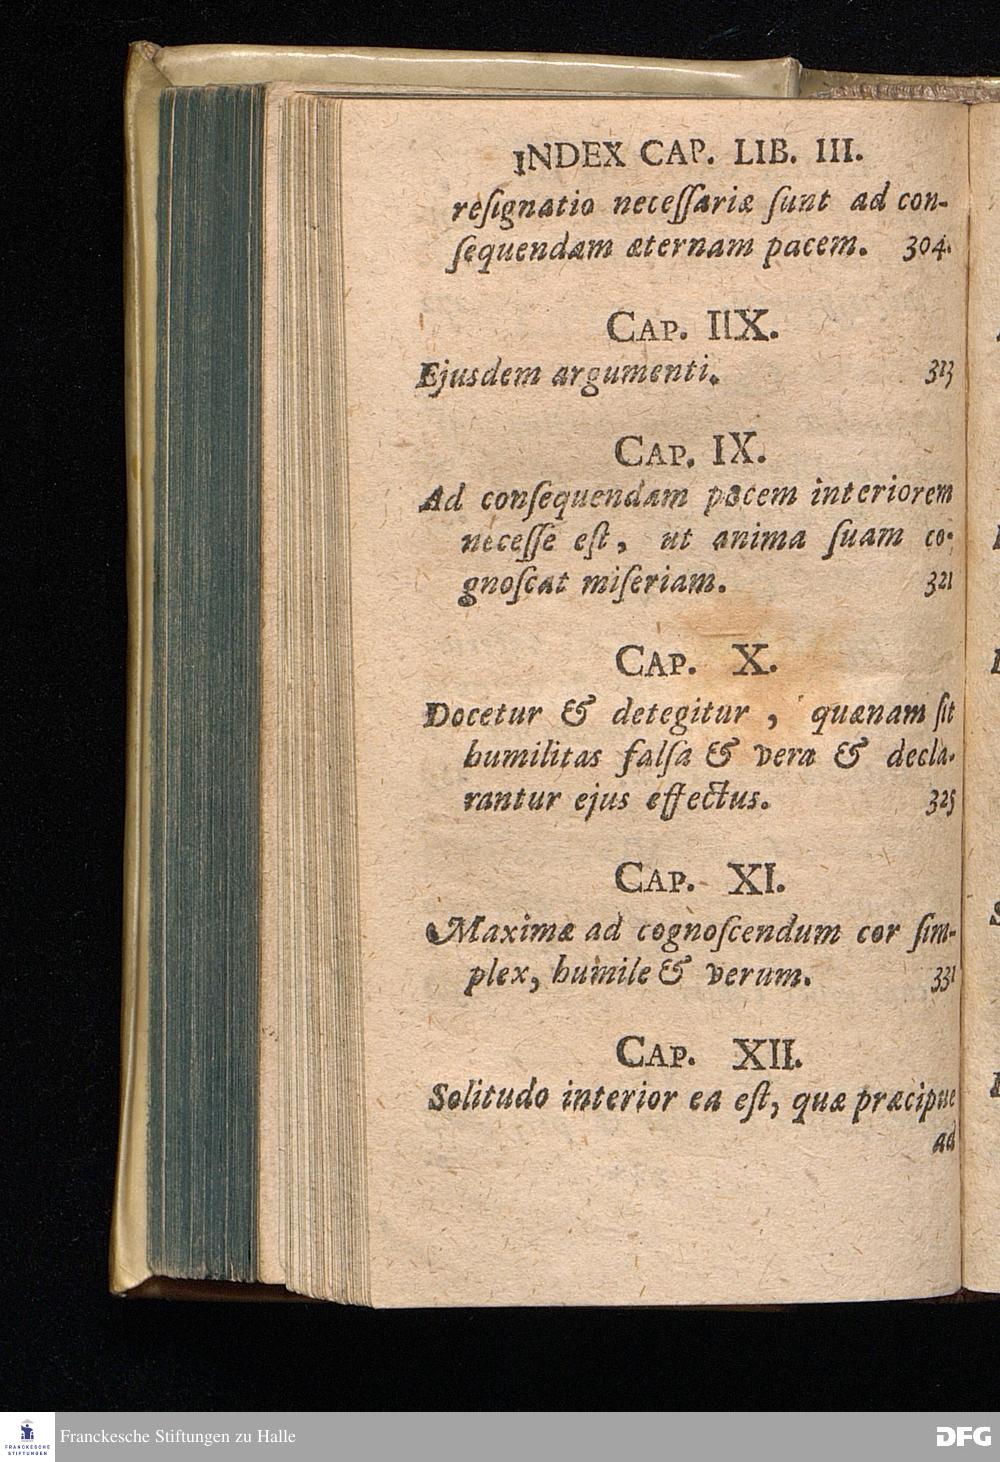 INDEX CAP. LIB. III.
reſignatio neceſſariæ ſunt ad con-
ſequendam æternam pacem. 304.
CAP. IIX.
Ejusdem argumenti. 313
CAP. IX.
Ad conſequendam pacem interiorem
neceſſe eſt, ut anima ſuam co-
gnoſcat miſeriam. 321
CAP. X.
Docetur & detegitur, quænam ſit
humilitas falſa & vera & decla-
rantur ejus effectus. 325
CAP. XI.
Maximæ ad cognoſcendum cor ſim-
plex, humile & verum. 331
CAP. XII.
Solitudo interior ea eſt, quæ præcipue
ad
FRANCKESCHE
STIFTUNGEN
Franckesche Stiftungen zu Halle
DFG